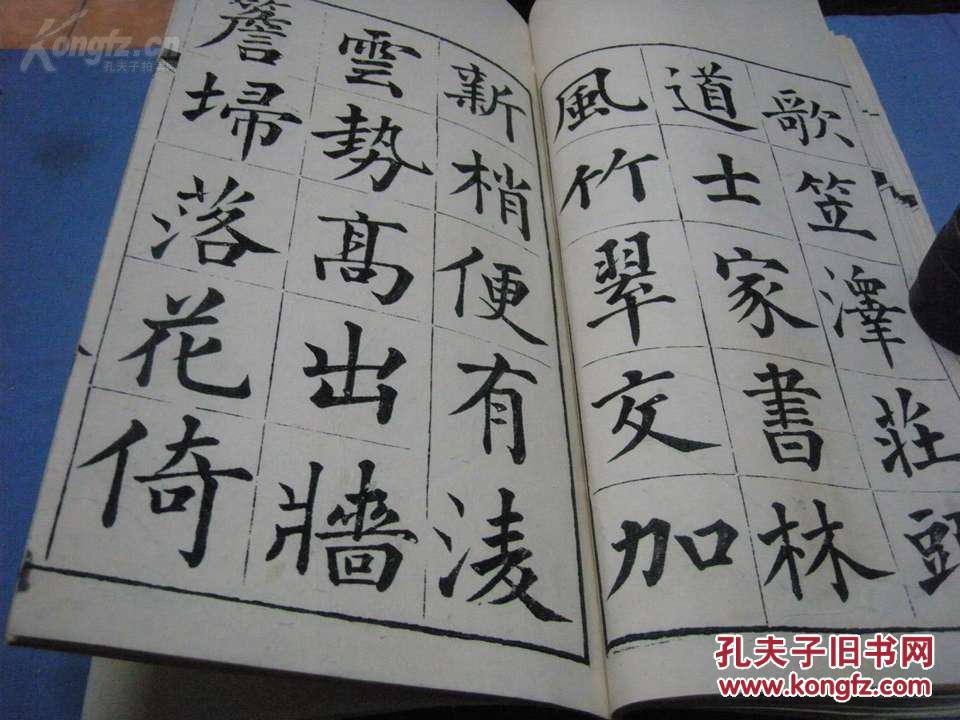 歌笠澤莊頭
道士家書林
風竹翠交加
新梢便有淩
雲勢高出牆
簷掃落花倚
Kongfz.cn
孔夫子拍卖
孔夫子旧书网
www.kongfz.com